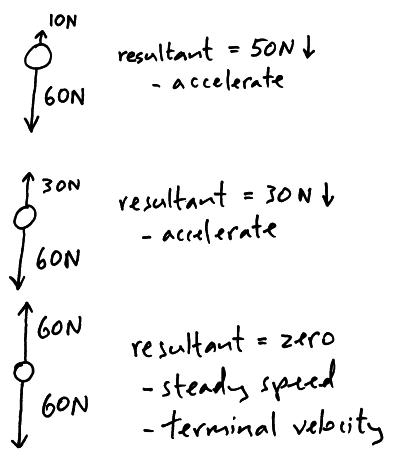 10N
resultant = 50N ↓
- accelerate
60N
30N
resultant = 30N ↓
- accelerate
60N
60N
resultant = zero
- steady speed
60N
- terminal velocity